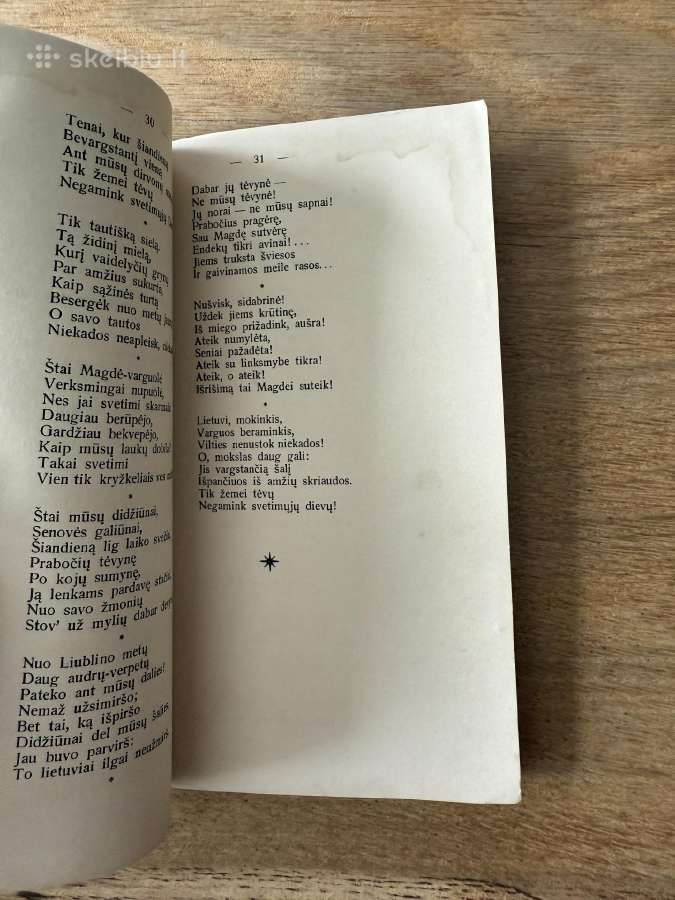 skelbiu.lt
— 30 —
Tenai, kur šiandieną
Bevargstantį vieną
Ant mūsų dirvonų
Tik žemei tėvų
Negamink svetimųjų
*
Tik tautišką sielą,
Tą židinį mielą,
Kurį vaidelyčių
Par amžius sukurta,
Kaip sąžinės turtą
Besergėk nuo metų
O savo tautos
Niekados neapleisk,
*
Štai Magdė-varguolė
Verksmingai nupuolė,
Nes jai svetimi
Daugiau berūpėjo,
Gardžiau bekvepėjo,
Kaip mūsų laukų
Takai svetimi
Vien tik kryžkeliais ves
*
Štai mūsų didžiūnai,
Senovės galiūnai,
Šiandieną lig laiko
Prabočių tėvynę
Po kojų sumynę,
Ją lenkams pardavę
Nuo savo žmonių
Stov' už mylių dabar
*
Nuo Liublino metų
Daug audrų-verpetų
Pateko ant mūsų dalies!
Nemaž užsimiršo;
Bet tai, ką išpiršo
Didžiūnai del mūsų
Jau buvo parvirš:
To lietuviai ilgai
*
— 31 —
Dabar jų tėvynė —
Ne mūsų tėvynė!
Jų norai — ne mūsų sapnai!
Prabočius pragėrę,
Sau Magdę sutvėrę
Endekų tikri avinai!...
Jiems truksta šviesos
Ir gaivinamos meile rasos...
*
Nušvisk, sidabrinė!
Uždek jiems krūtinę,
Iš miego prižadink, aušra!
Ateik numylėta,
Seniai pažadėta!
Ateik su linksmybe tikra!
Ateik, o ateik!
Išrišimą tai Magdei suteik!
*
Lietuvi, mokinkis,
Varguos beraminkis,
Vilties nenustok niekados!
O, mokslas daug gali:
Jis vargstančią šalį
Išpančiuos iš amžių skriaudos.
Tik žemei tėvų
Negamink svetimųjų dievų!